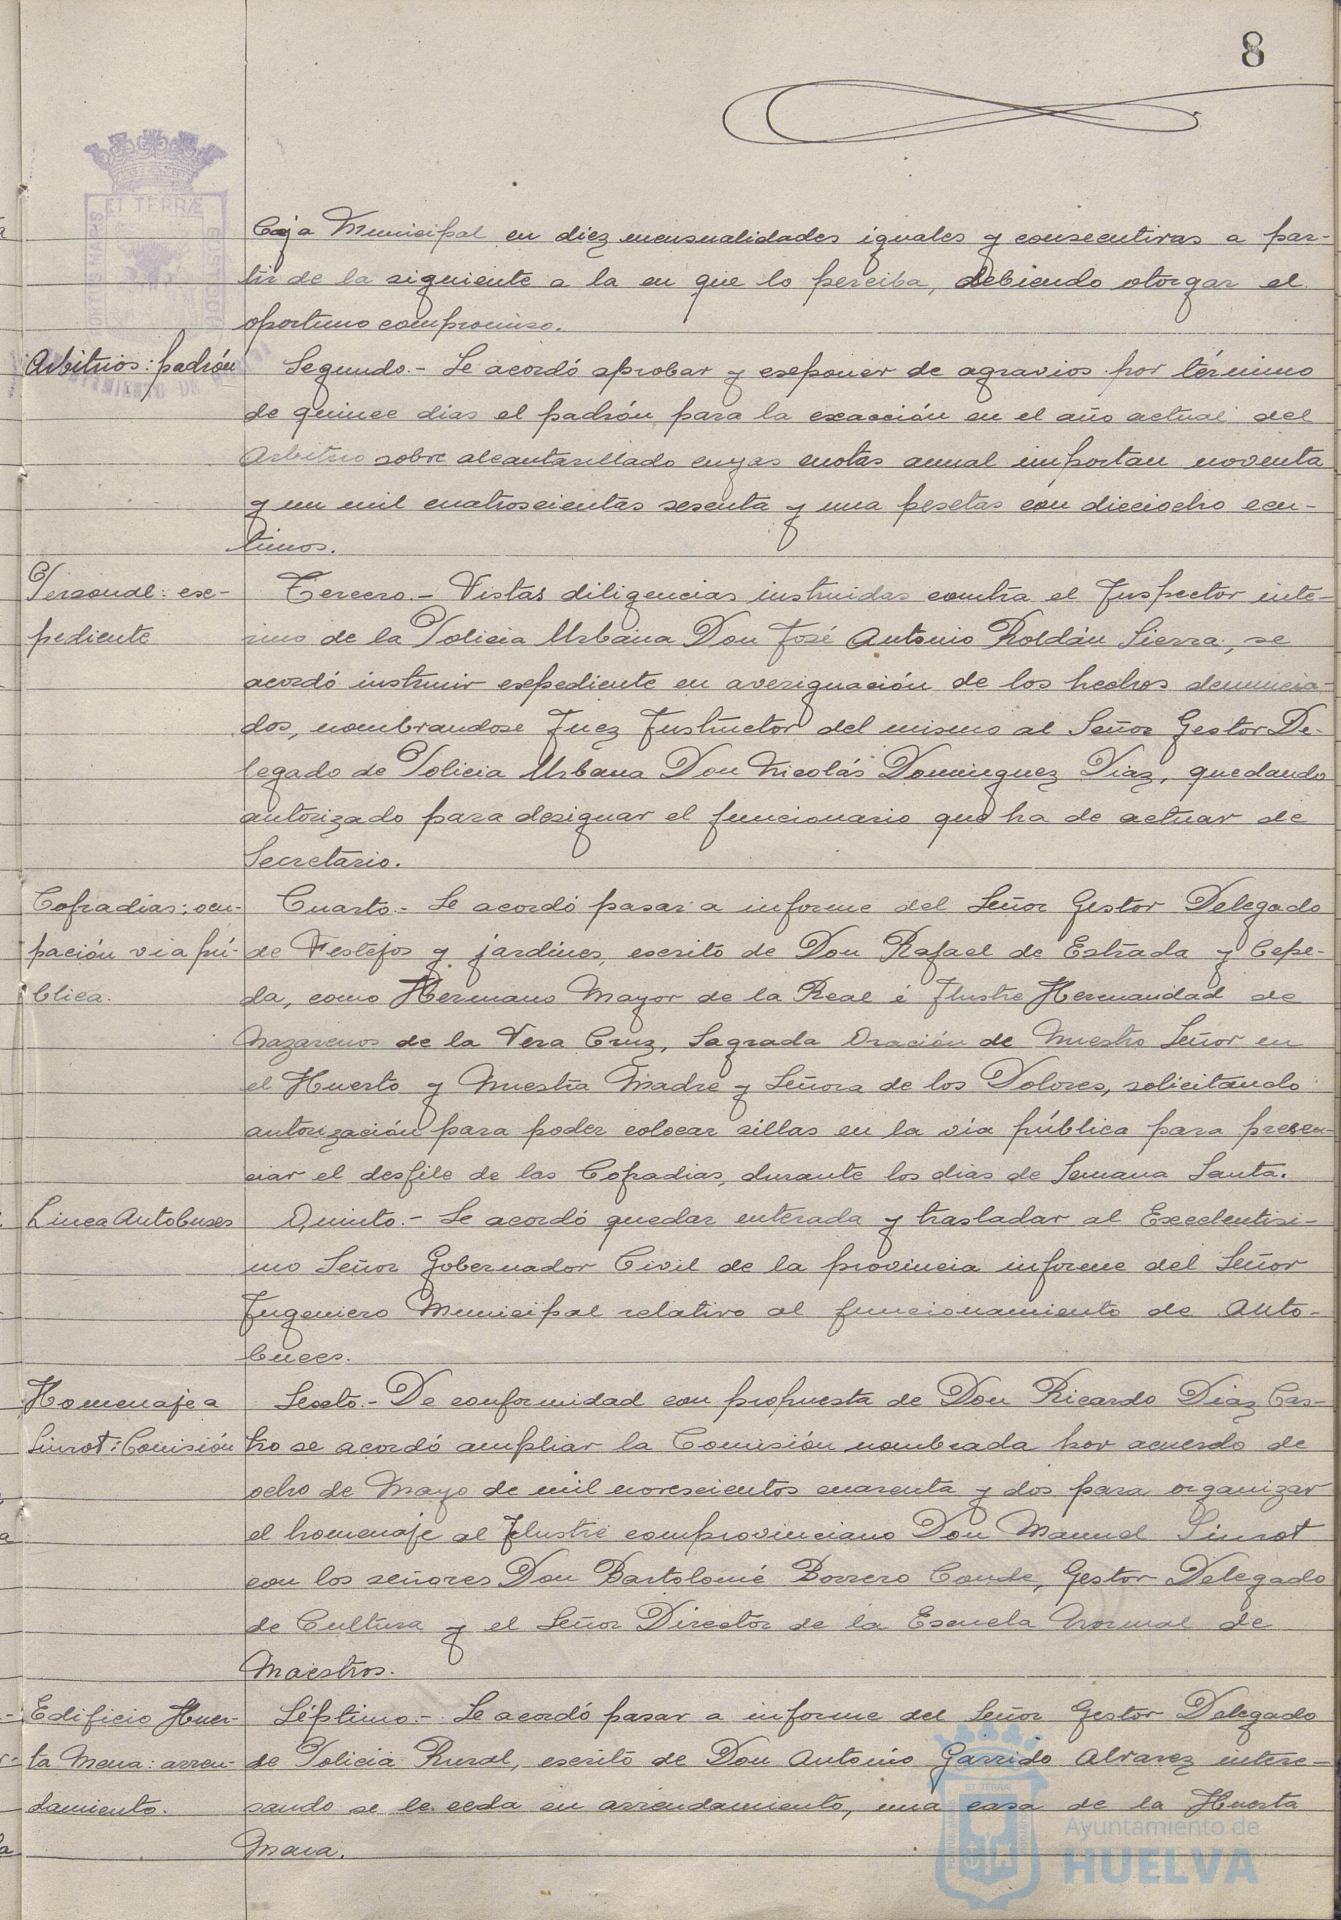 8
Caja Municipal en diez mensualidades iguales y consecutivas a par-
tir de la siguiente a la en que lo perciba, debiendo otorgar el
oportuno compromiso.
Arbitrios: padrón
Segundo.- Se acordó aprobar y exponer de agravios por término
de quince dias el padrón para la exacción en el año actual del
Arbitrio sobre alcantarillado cuyas cuotas anual importan noventa
y un mil cuatroscientas sesenta y una pesetas con dieciocho cen-
timos.
Personal: ex-
pediente
Tercero.- Vistas diligencias instruidas contra el Inspector inte-
rino de la Policia Urbana Don José Antonio Roldán Sierra, se
acordó instruir expediente en averiguación de los hechos denuncia-
dos, nombrandose Juez Instructor del mismo al Señor Gestor De-
legado de Policia Urbana Don Nicolás Dominguez Diaz, quedando
autorizado para designar el funcionario que ha de actuar de
Secretario.
Cofradias: ocu-
pación via pú-
blica.
Cuarto.- Se acordó pasar a informe del Señor Gestor Delegado
de Festejos y jardines, escrito de Don Rafael de Estrada y Cepe-
da, como Hermano Mayor de la Real é Ilustre Hermandad de
Nazarenos de la Vera Cruz, Sagrada Oración de Nuestro Señor en
el Huerto y Nuestra Madre y Señora de los Dolores, solicitando
autorización para poder colocar sillas en la via pública para presen-
ciar el desfile de las Cofradias, durante los dias de Semana Santa.
Linea Autobuses
Quinto.- Se acordó quedar enterada y trasladar al Excelentisi-
mo Señor Gobernador Civil de la provincia informe del Señor
Ingeniero Municipal relativo al funcionamiento de Auto-
buses.
Homenaje a
Siurot: Comisión
Sexto.- De conformidad con propuesta de Don Ricardo Diaz Cas-
tro se acordó ampliar la Comisión nombrada por acuerdo de
ocho de Mayo de mil novescientos cuarenta y dos para organizar
el homenaje al Ilustre comprovinciano Don Manuel Siurot
con los señores Don Bartolomé Borrero Conde, Gestor Delegado
de Cultura y el Señor Director de la Escuela Normal de
Maestros.
Edificio Huer-
ta Mena: arren-
damiento.
Séptimo.- Se acordó pasar a informe del Señor Gestor Delegado
de Policia Rural, escrito de Don Antonio Garrido Alvarez intere-
sando se le ceda en arrendamiento, una casa de la Huerta
Mena.
ET TERRÆ
CUSTODIA
PORTUS MARIS
Ayuntamiento de
HUELVA